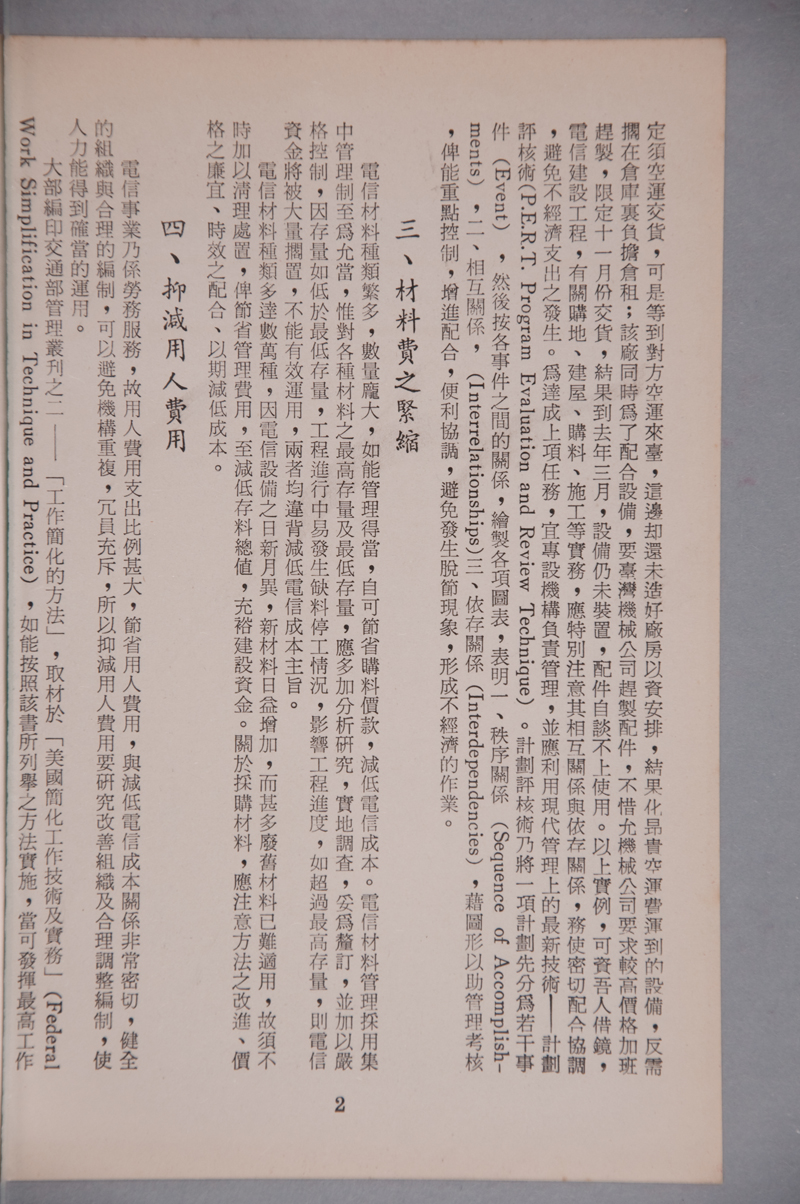 定須空運交貨，可是等到對方空運來臺，這邊却還未造好廠房以資安排，結果化昻貴空運費運到的設備，反需
擱在倉庫裏負擔倉租；該廠同時爲了配合設備，要臺灣機械公司趕製配件，不惜允機械公司要求較高價格加班
趕製，限定十一月份交貨，結果到去年三月，設備仍未裝置，配件自談不上使用。以上實例，可資吾人借鏡，
電信建設工程，有關購地、建屋、購料、施工等實務，應特別注意其相互關係與依存關係，務使密切配合協調
，避免不經濟支出之發生。爲達成上項任務，宜專設機構負責管理，並應利用現代管理上的最新技術——計劃
評核術(P.E.R.T. Program Evaluation and Review Technique)。計劃評核術乃將一項計劃先分爲若干事
件 (Event)，然後按各事件之間的關係，繪製各項圖表，表明一、秩序關係 (Sequence of Accomplish-
ments)，二、相互關係，(Interrelationships)三、依存關係 (Interdependencies)，藉圖形以助管理考核
，俾能重點控制，增進配合，便利協調，避免發生脫節現象，形成不經濟的作業。
三、材料費之緊縮
電信材料種類繁多，數量龐大，如能管理得當，自可節省購料價款，減低電信成本。電信材料管理採用集
中管理制至爲允當，惟對各種材料之最高存量及最低存量，應多加分析研究，實地調查，妥爲釐訂，並加以嚴
格控制，因存量如低於最低存量，工程進行中易發生缺料停工情況，影響工程進度，如超過最高存量，則電信
資金將被大量擱置，不能有效運用，兩者均違背減低電信成本主旨。
電信材料種類多達數萬種，因電信設備之日新月異，新材料日益增加，而甚多廢舊材料已難適用，故須不
時加以清理處置，俾節省管理費用，至減低存料總値，充裕建設資金。關於採購材料，應注意方法之改進、價
格之廉宜、時效之配合、以期減低成本。
四、抑減用人費用
電信事業乃係勞務服務，故用人費用支出比例甚大，節省用人費用，與減低電信成本關係非常密切，健全
的組織與合理的編制，可以避免機構重複，冗員充斥，所以抑減用人費用要研究改善組織及合理調整編制，使
人力能得到確當的運用。
大部編印交通部管理叢刊之二——「工作簡化的方法」，取材於「美國簡化工作技術及實務」(Federal
Work Simplification in Technique and Practice)，如能按照該書所列舉之方法實施，當可發揮最高工作
2